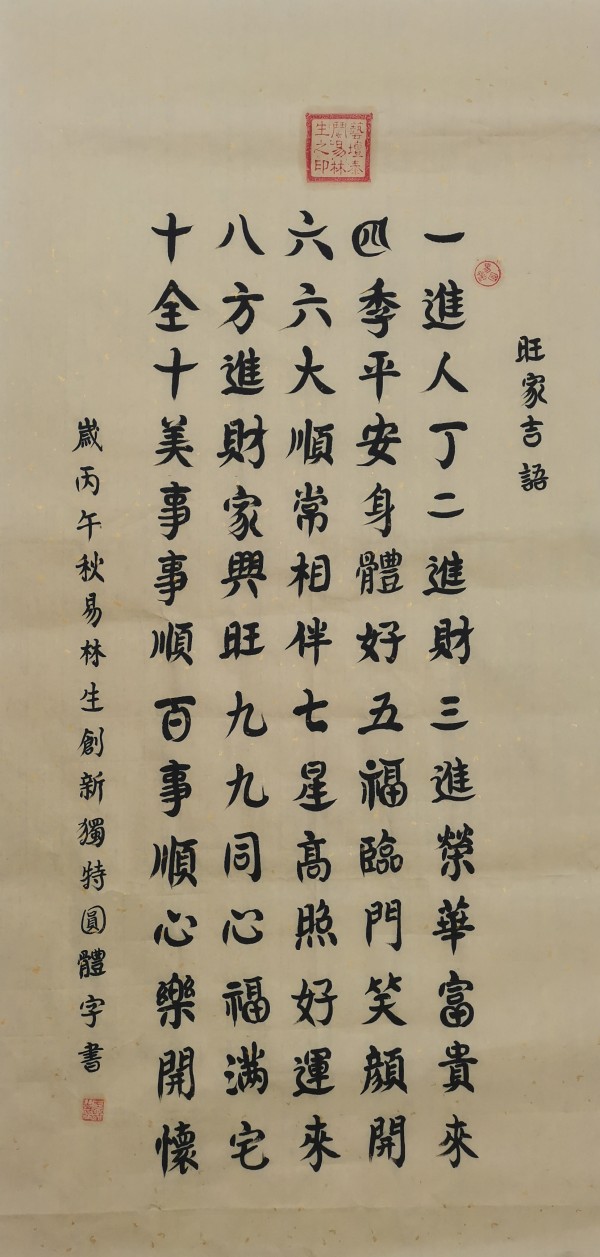 旺家吉語
一進人丁二進財三進榮華富貴來
四季平安身體好五福臨門笑顏開
六六大順常相伴七星高照好運來
八方進財家興旺九九同心福滿宅
十全十美事事順百事順心樂開懷
歲丙午秋易林生創新獨特圓體字書
藝壇泰
鬥易林
生之印